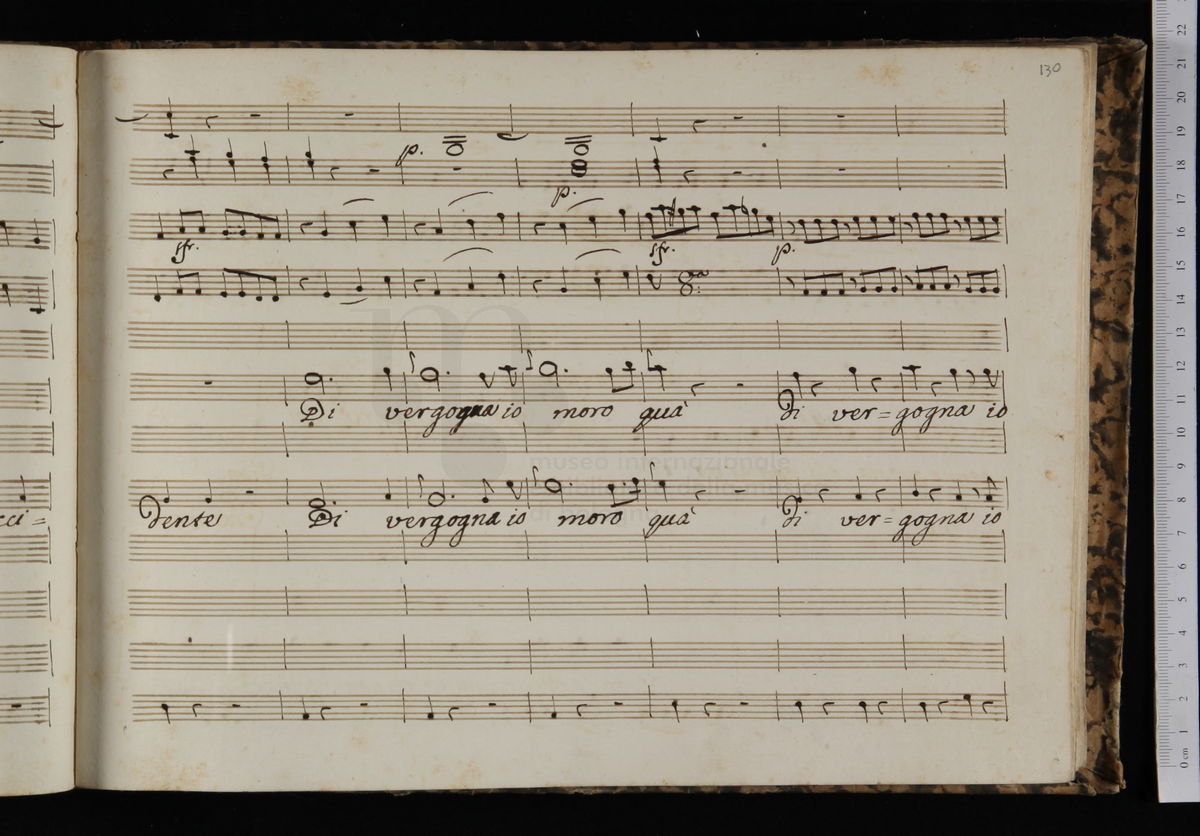 130
p.
p.
sfr. sfr. p.
Di vergogna io moro quà di ver=gogna io
cci= dente Di vergogna io moro quà di ver=gogna io
museo internazionale
0 cm 1 2 3 4 5 6 7 8 9 10 11 12 13 14 15 16 17 18 19 20 21 22